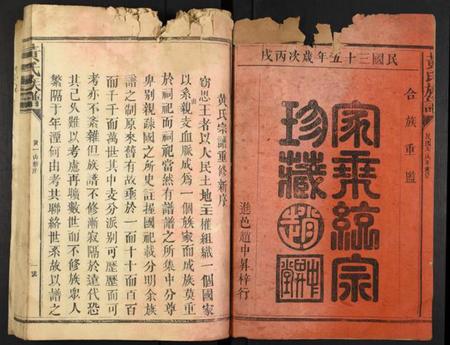 民國三十五年歲次丙戌
合族重鐫
家乘統宗
珍藏
進邑趙中昇梓行
黃氏族譜
黃氏宗譜重修新序
竊思王者以人民土地主權組織一個國家
以系親支血脈成為一個族家而成族莫重
於祠祀而祠祀當然有譜譜之所集中分尊
卑別親疎國之所史註握國祀載分明余族
譜之制原來舊有故垂於一而十十而百百
而千千而萬世其中支分派別可歷歷而可
考亦不紊雜但族譜不修漸寂隔於遠代恐
其已久難以考再曠數世而不修族衆人
繁隔百年湮何由考其聯絡世系故以譜之
黃氏族譜